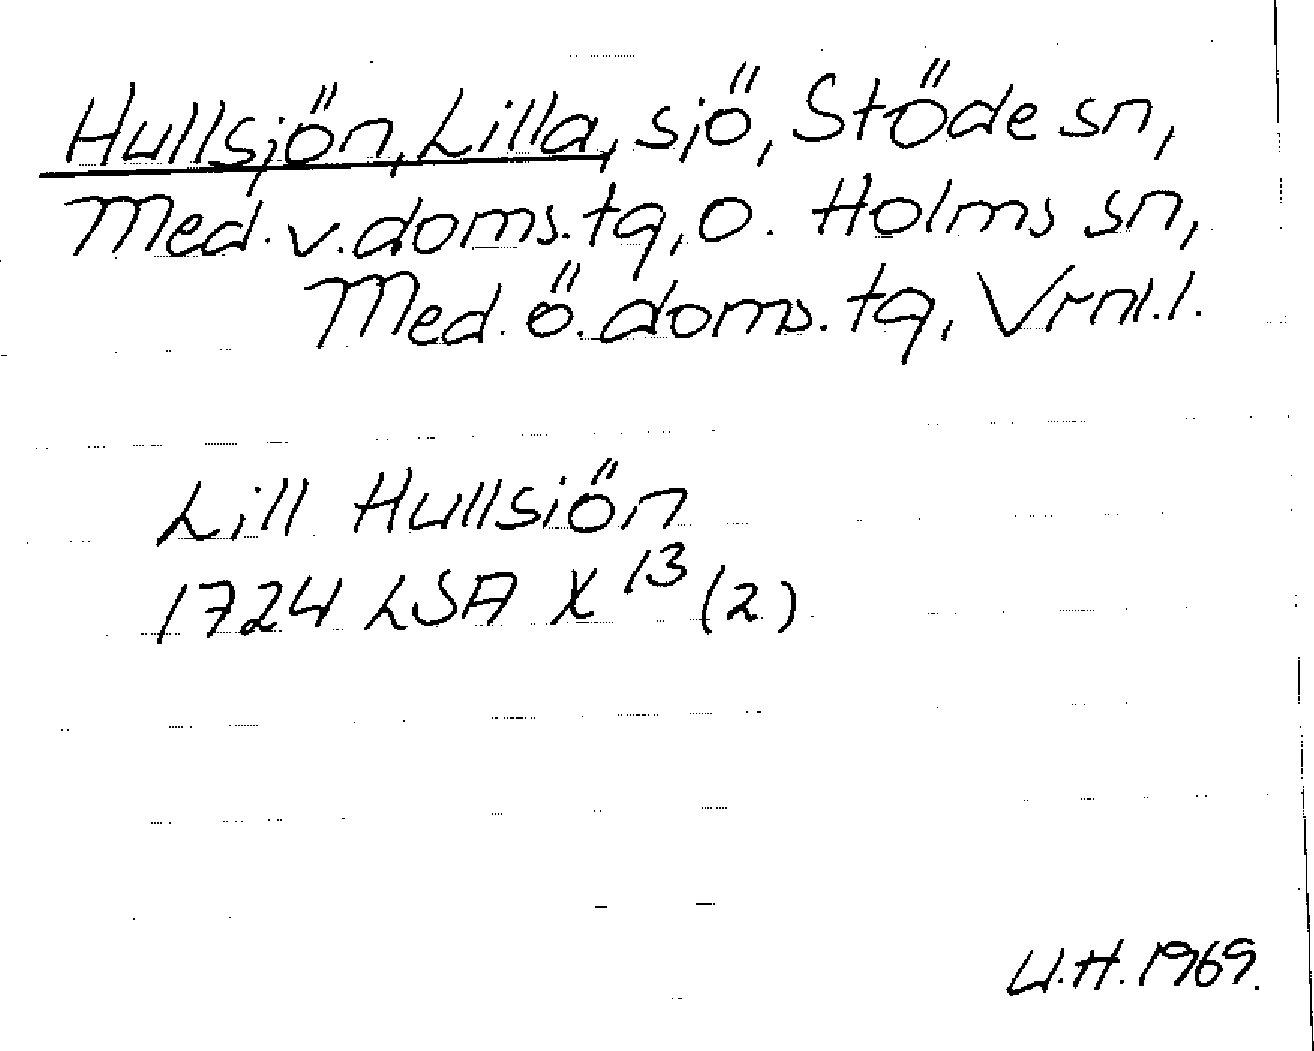 Hullsjön, Lilla, sjö, Stöde sn,
Med. v. doms. tg, o. Holms sn,
Med. ö. doms. tg, Vrnl.l.
Lill Hullsiön
1724 LSA X 13 (2)
U.H. 1969.